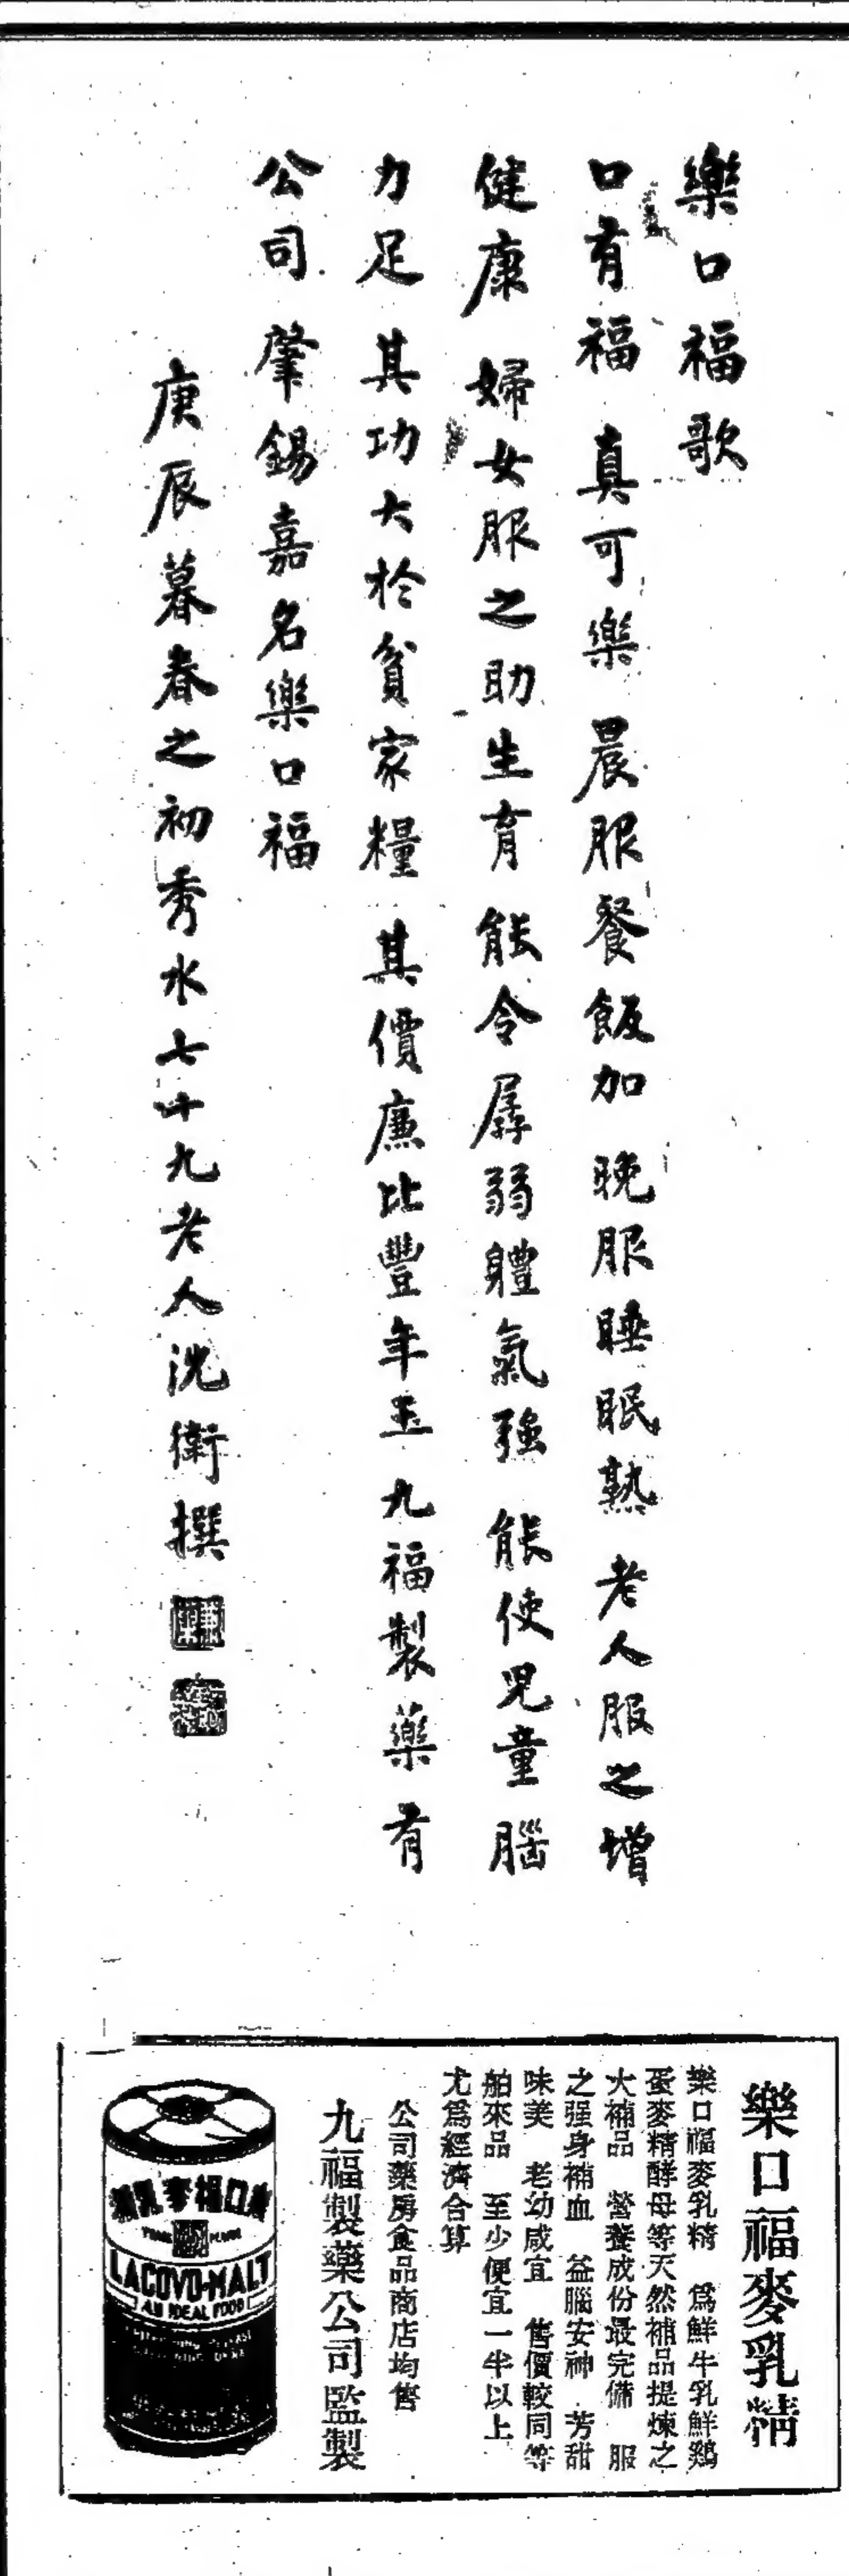 樂口福歌
口有福 真可樂 晨服餐飯加 晚服睡眠熟 老人服之增
健康 婦女服之助生育 能令孱弱體氣強 能使兒童腦
力足 其功大於貧家糧 其價廉比豐年玉 九福製藥有
公司 肇錫嘉名樂口福
庚辰暮春之初秀水七十九老人沈衛撰
樂口福麥乳精
樂口福麥乳精 爲鮮牛乳鮮鷄
蛋麥精酵母等天然補品提煉之
大補品 營養成份最完備 服
之强身補血 益腦安神 芳甜
味美 老幼咸宜 售價較同等
舶來品 至少便宜一半以上
尤爲經濟合算
公司藥房食品商店均售
九福製藥公司監製
精乳麥福口樂
TRADE MARK
LACOVO-MALT
AN IDEAL FOOD